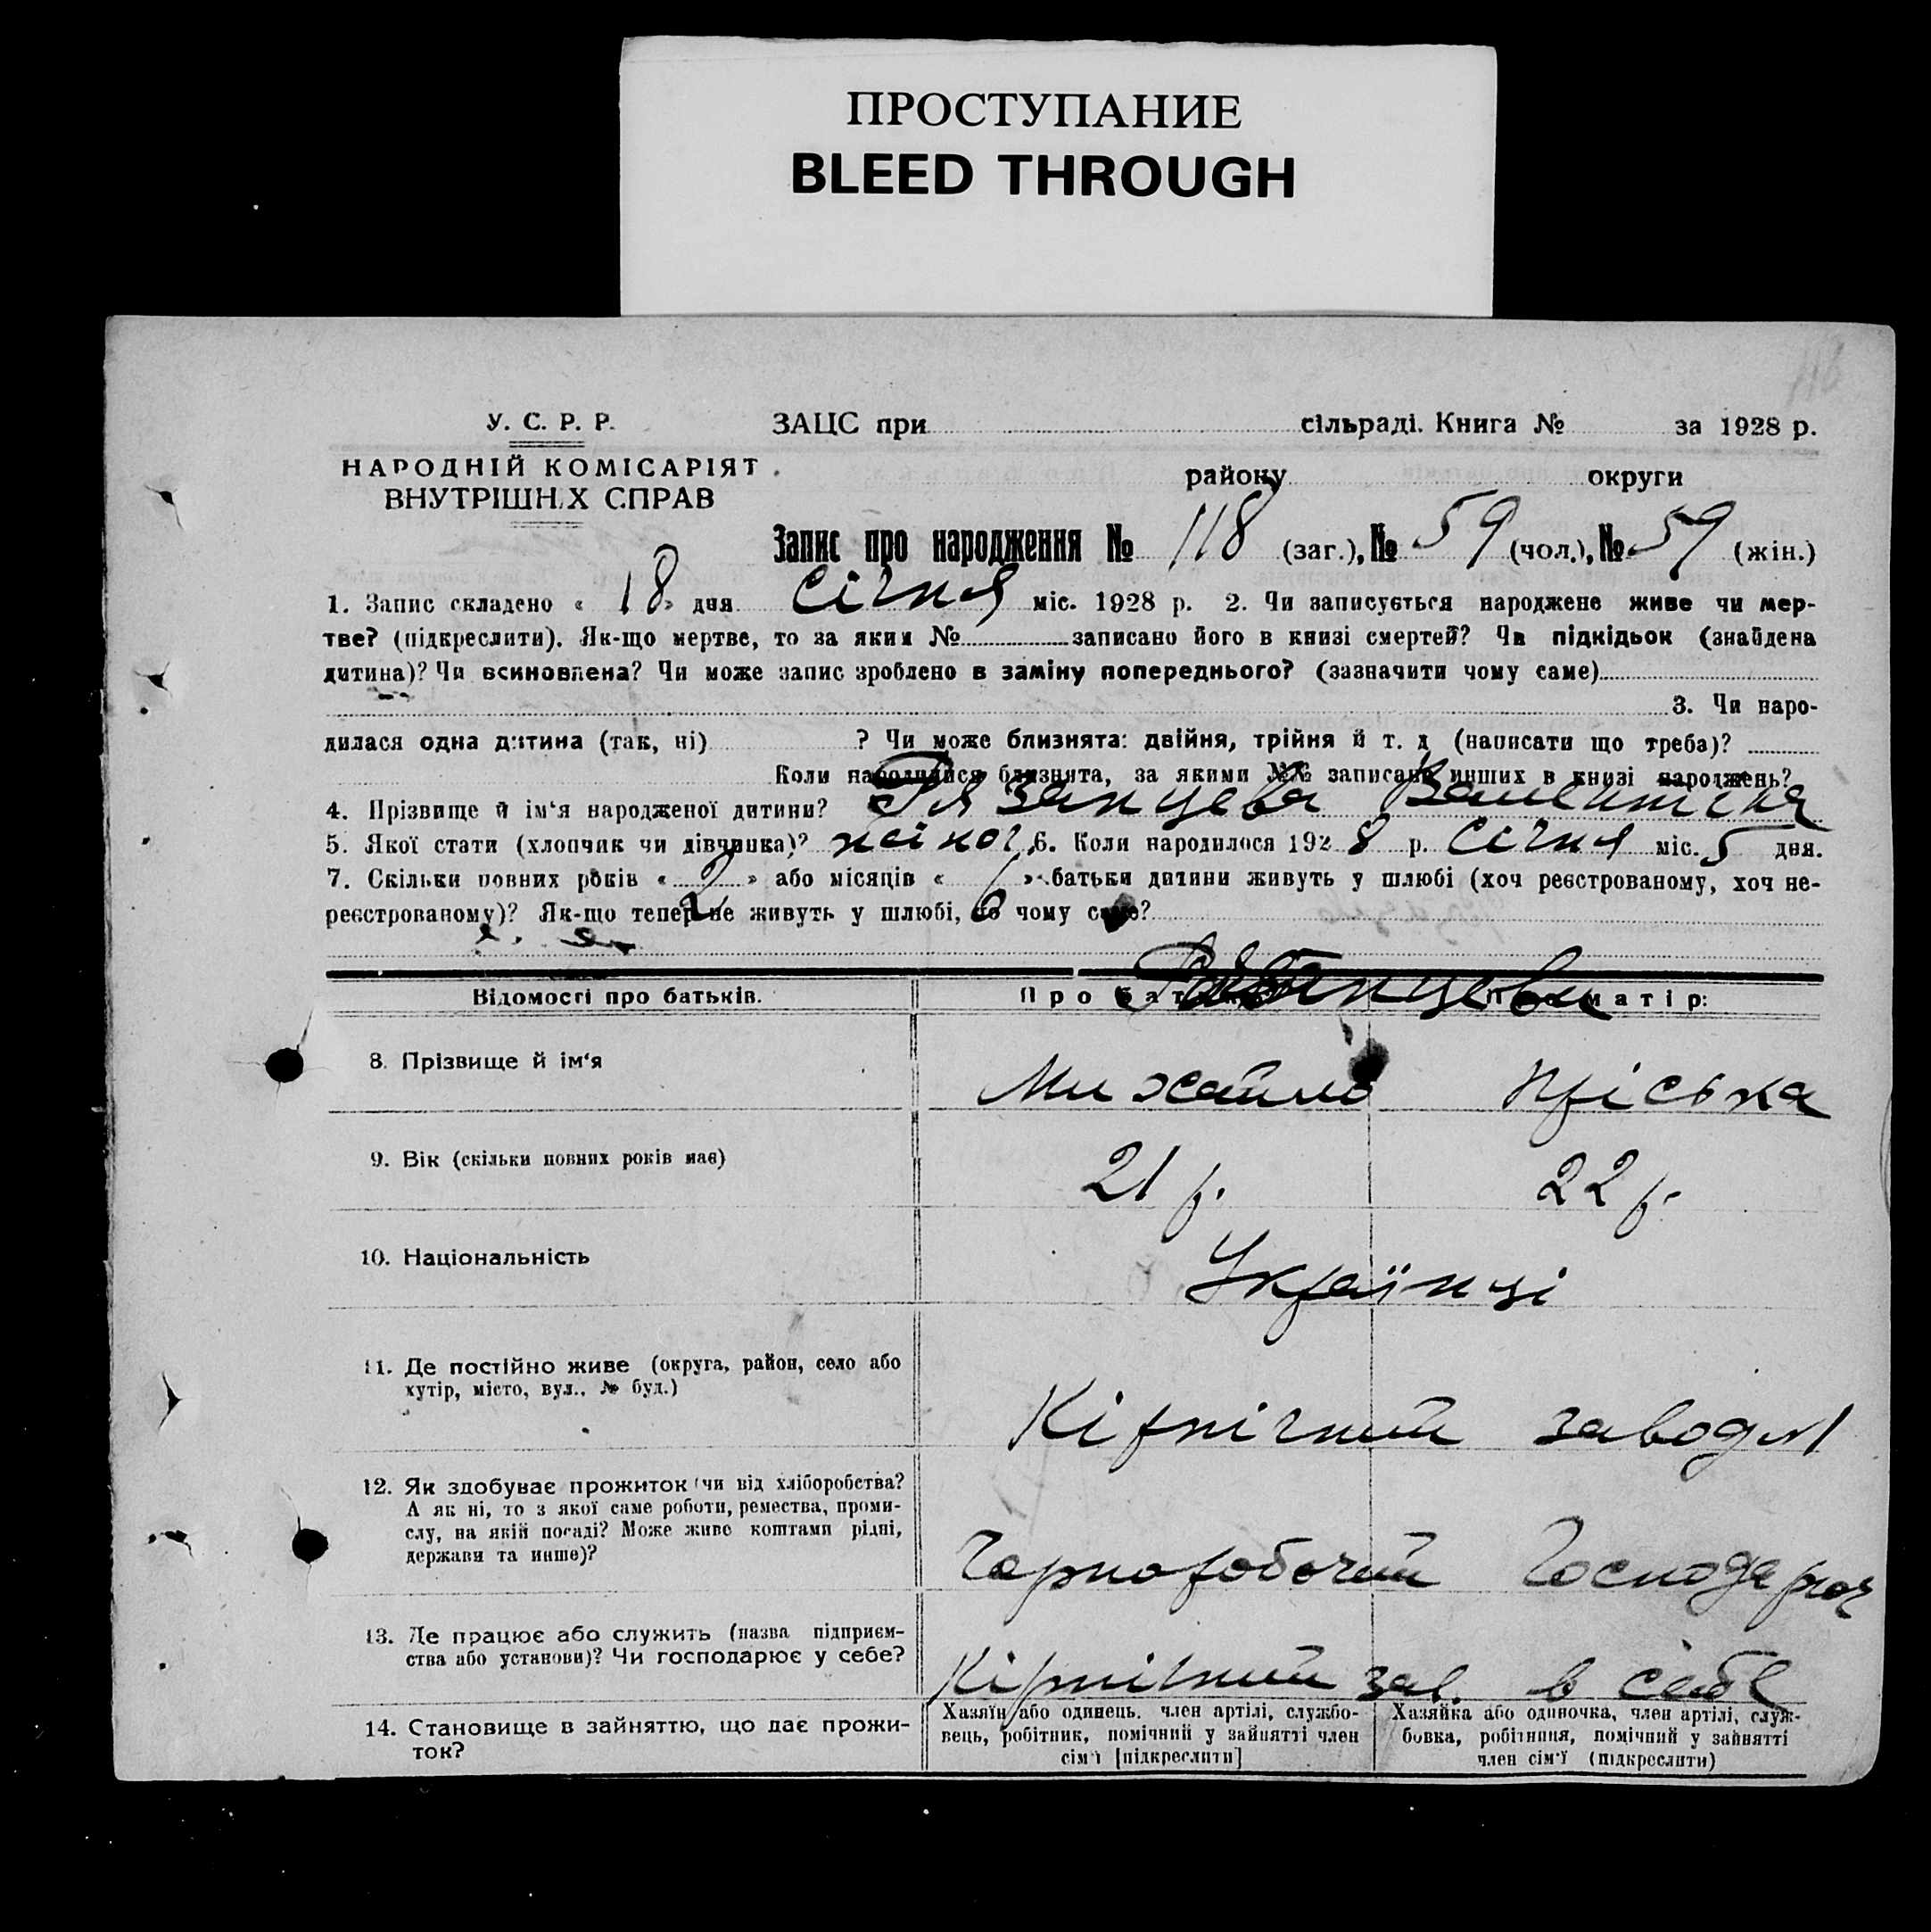 ПРОСТУПАНИЕ
BLEED THROUGH
116
У. С. Р. Р.
НАРОДНІЙ КОМІСАРІЯТ
ВНУТРІШНІХ СПРАВ
ЗАЦС при сільраді. Книга № за 1928 р.
району округи
Запис про народження № 118 (заг.), № 59 (чол.), № 59 (жін.)
1. Запис складено « 18 » дня січня міс. 1928 р. 2. Чи записується народжене живе чи мер-
тве? (підкреслити). Як-що мертве, то за яким № записано його в книзі смертей? Чи підкідьок (знайдена
дитина)? Чи всиновлена? Чи може запис зроблено в заміну попереднього? (зазначити чому саме)
3. Чи наро-
дилася одна дитина (так, ні) ? Чи може близнята: двійня, трійня й т. д (написати що треба)?
Коли народилися близнята, за якими №№ записано инших в книзі народжень?
4. Прізвище й ім‘я народженої дитини? Рязанцева Валентина
5. Якої статі (хлопчик чи дівчинка)? жіноч. 6. Коли народилося 1928 р. Січня міс. 5 дня.
7. Скільки повних років « 2 » або місяців « 6 » батьки дитини живуть у шлюбі (хоч реєстрованому, хоч не-
реєстрованому)? Як-що тепер не живуть у шлюбі, то чому саме?
Рязанцеви
Відомості про батьків. Про батька Про матір:
8. Прізвище й ім‘я Михайло Пріська
9. Вік (скільки повних років має) 21 р. 22 р.
10. Національність Українці
11. Де постійно живе (округа, район, село або
хутір, місто, вул., № буд.)
Кірпічний завод
12. Як здобуває прожиток (чи від хліборобства?
А як ні, то з якої саме роботи, ремества, проми-
слу, на якій посаді? Може живе коштами рідні,
держави та инше)?
Чорноробочий Господарюч
13. Де працює або служить (назва підприєм-
ства або установи)? Чи господарює у себе?
Кірпічний зав. в себе
14. Становище в зайняттю, що дає прожи-
ток?
Хазяїн або одинець, член артілі, службо-
вець, робітник, помічний у зайнятті член
сім‘ї [підкреслити]
Хазяйка або одиночка, член артілі, служ-
бовка, робітниця, помічний у зайнятті
член сім‘ї (підкреслити)